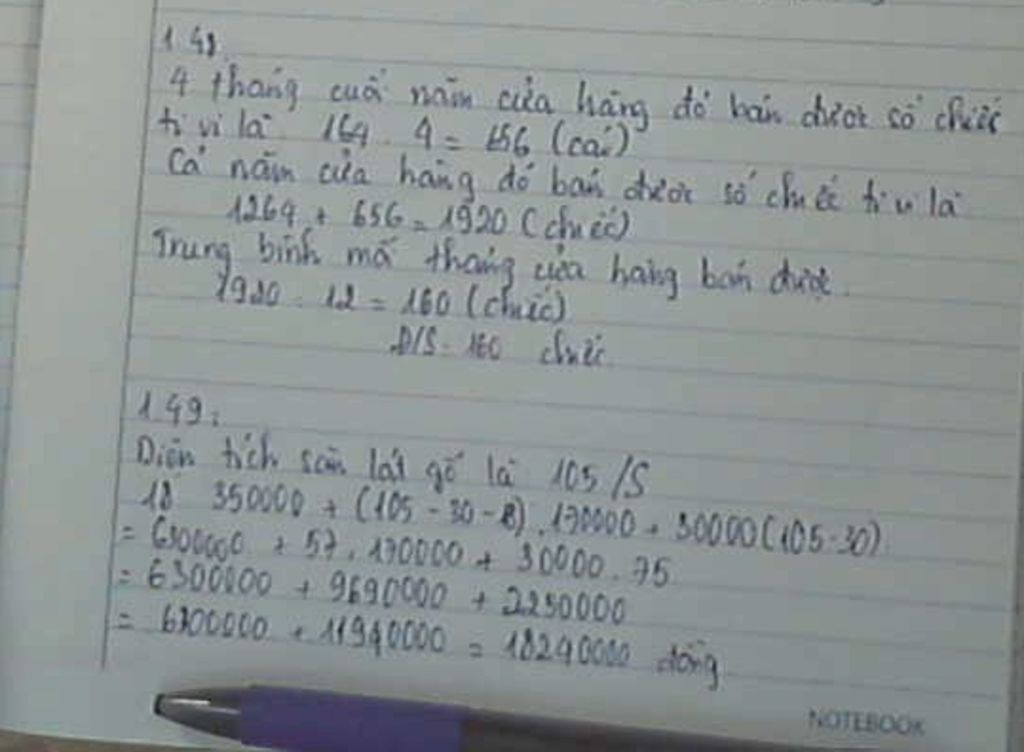 1.48
4 tháng cuối năm cửa hàng đó bán được số chiếc
ti vi là 164 . 4 = 656 (cái)
Cả năm cửa hàng đó bán được số chiếc ti vi là
1264 + 656 = 1920 (chiếc)
Trung bình mỗi tháng cửa hàng bán được.
1920 : 12 = 160 (chiếc)
Đ/S: 160 chiếc
1.49:
Diện tích sàn lát gỗ là 105 /S
18 350000 + (105 - 30 - 18) . 170000 + 30000(105-30)
= 6300000 + 57 . 170000 + 30000 . 75
= 6300000 + 9690000 + 2250000
= 6300000 + 11940000 = 18240000 đồng
NOTEBOOK